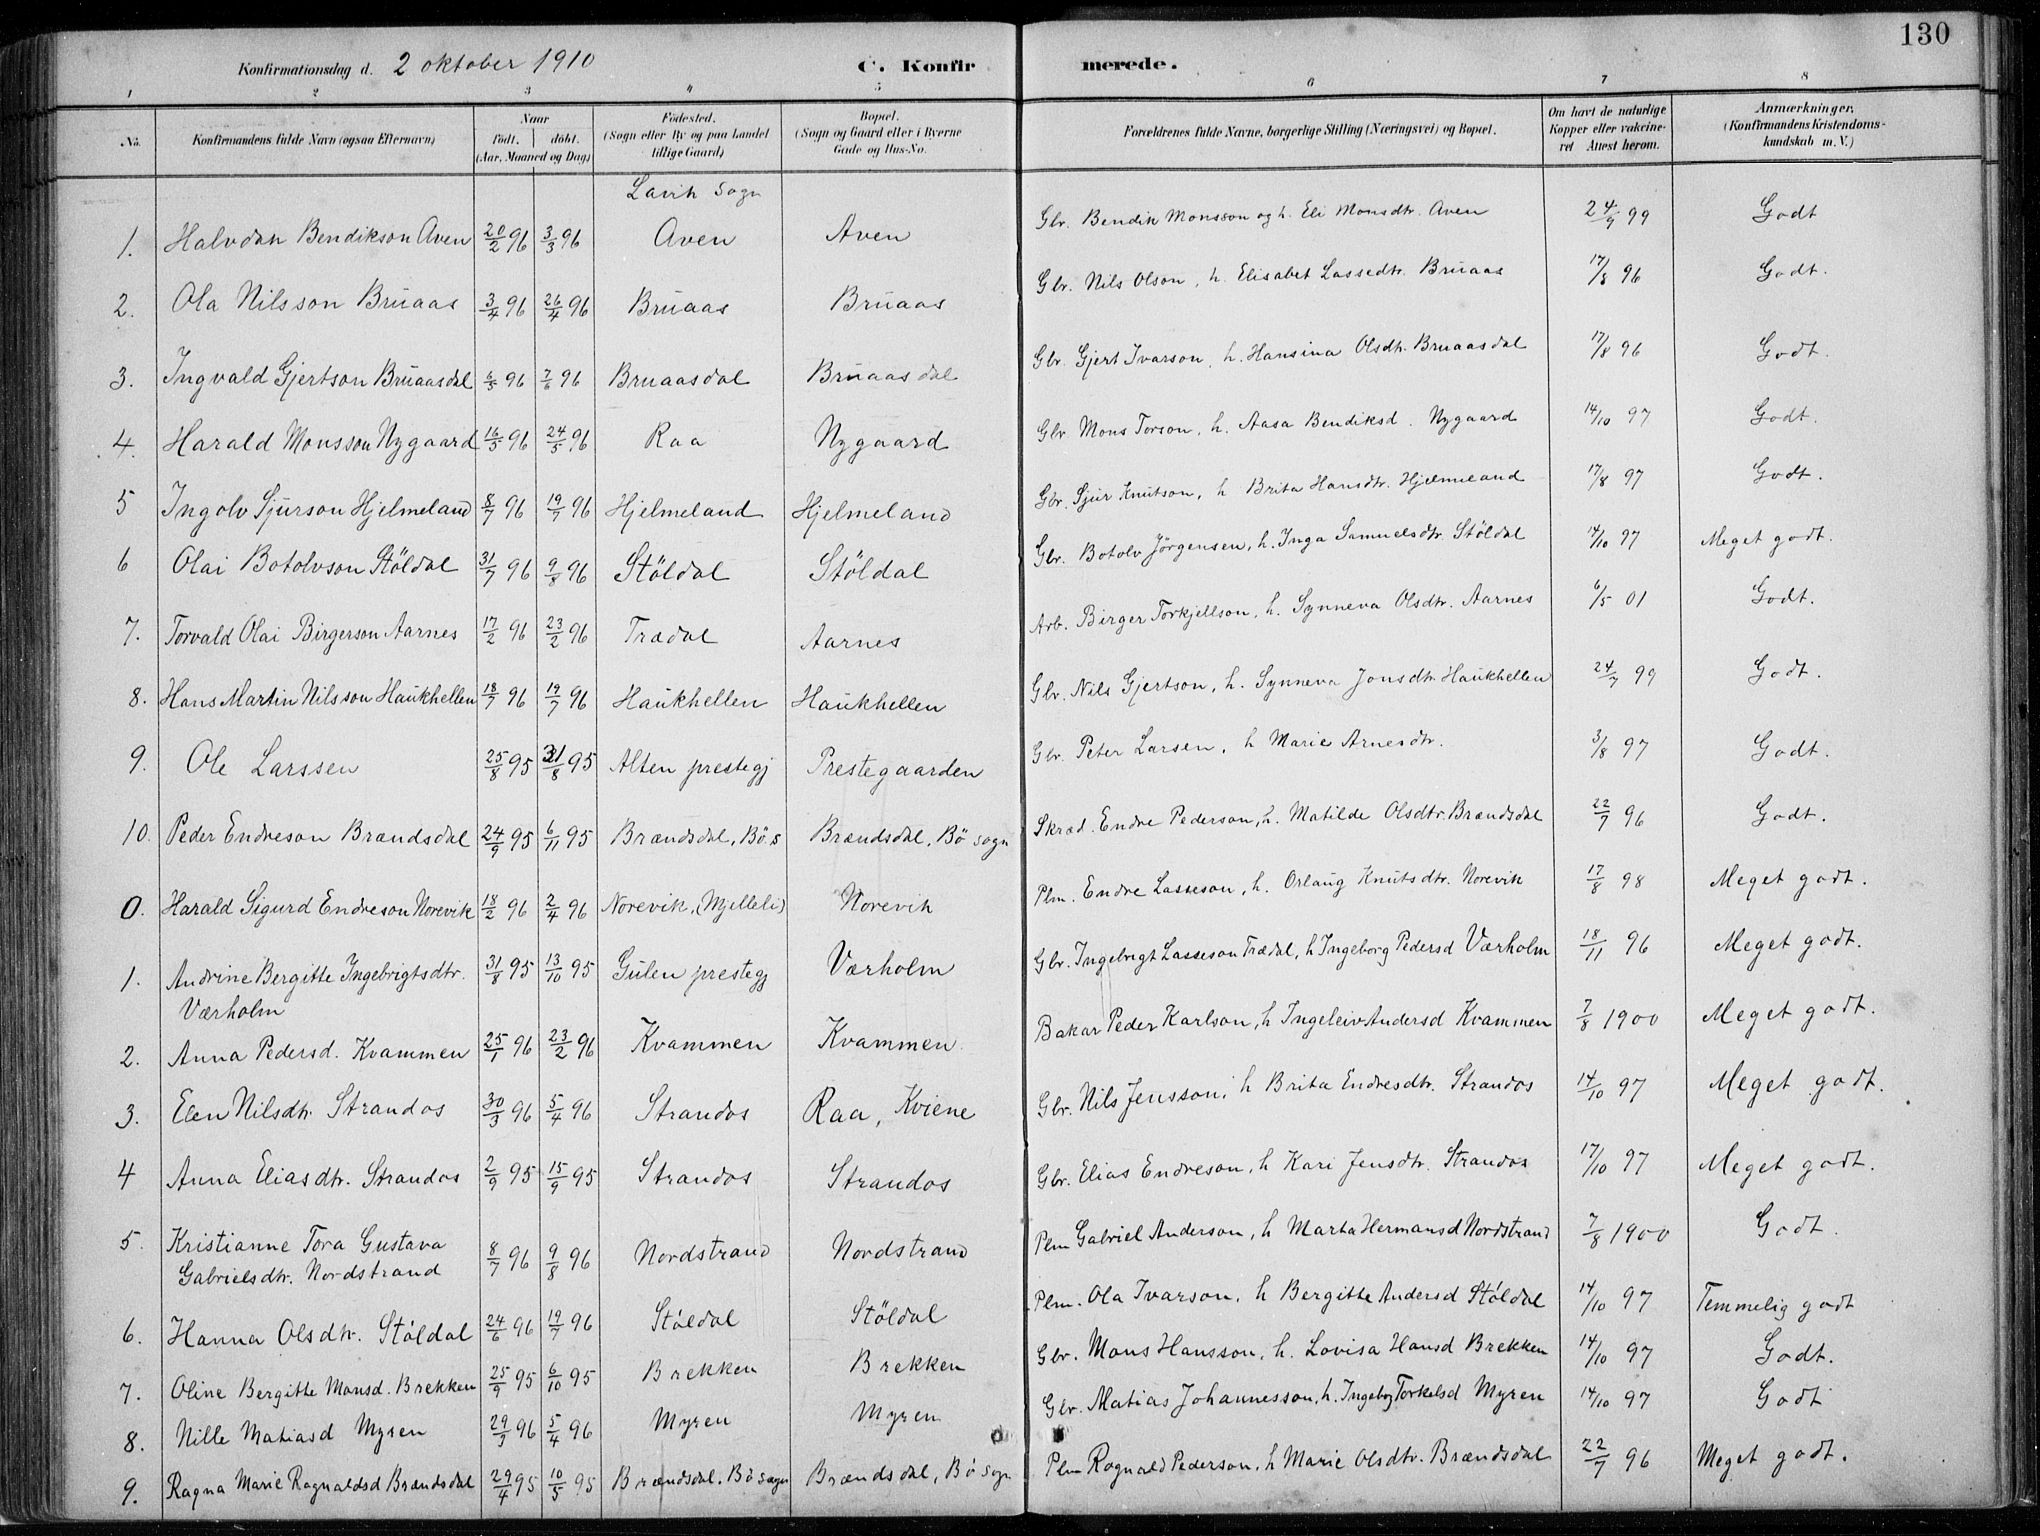 130
Konfirmationsdag d. 2 oktober 1910 C. Konfirmerede.
1 2 3 4 5 6 7 8
No. Konfirmandens fulde Navn (ogsaa Efternavn) Naar født. døbt. (Aar, Maaned og Dag) Fødested. (Sogn eller By og paa Landet tillige Gaard) Bopæl. (Sogn og Gaard eller i Byerne Gade og Hus-No. Forældrenes fulde Navne, borgerlige Stilling (Næringsvei) og Bopæl. Om havt de naturlige Kopper eller vakcineret Attest herom. Anmærkninger. (Konfirmandens Kristendomskundskab m. V.)
Lavik Sogn
1. Halvdan Bendikson Aven 20/2 96 3/3 96 Aven Aven Gbr. Bendik Monsson og h. Eli Monsdtr. Aven 24/9 99 Godt
2. Ola Nilsson Bruaas 3/4 96 26/4 96 Bruaas Bruaas Gbr. Nils Olson, h. Elisabet Lassedtr. Bruaas 17/8 96 Godt.
3. Ingvald Gjertson Bruaasdal 6/5 96 7/6 96 Bruaasdal Bruaasdal Gbr. Gjert Ivarson, h. Hansina Olsdtr. Bruaasdal 17/8 96 Godt.
4. Harald Monsson Nygaard 16/5 96 24/5 96 Raa Nygaard Gbr Mons Torson, h. Aasa Bendiksd. Nygaard 14/10 97 Godt.
5 Ingolv Sjurson Hjelmeland 8/7 96 19/7 96 Hjelmeland Hjelmeland Gbr. Sjur Knutson, h Brita Hansdtr. Hjelmeland 17/8 97 Godt.
6 Olai Botolvson Støldal 31/7 96 9/8 96 Støldal Støldal Gbr. Botolv Jørgensen, h. Inga Samuelsdtr. Støldal 14/10 97 Meget godt.
7. Torvald Olai Birgerson Aarnes 17/2 96 23/2 96 Trædal Aarnes Arb. Birger Torkjellson, h. Synneva Olsdtr. Aarnes 6/5 01 Godt.
8. Hans Martin Nilsson Haukhellen 18/7 96 19/7 96 Haukhellen Haukhellen Gbr. Nils Gjertson, h. Synneva Jonsdtr. Haukhellen 24/7 99 Godt.
9. Ole Larssen 25/8 95 31/8 95 Alten prestegj Prestegaarden Gbr. Peter Larsen, h Marie Arnesdtr. 3/8 97 Godt.
10. Peder Endreson Brændsdal 24/9 95 6/11 95 Brændsdal, Bø s Brændsdal, Bø sogn Skræd. Endre Pederson, h. Matilde Olsdtr. Brændsdal 22/7 96 Godt.
0. Harald Sigurd Endreson Norevik 18/2 96 2/4 96 Norevik, (Mjelleli) Norevik Plm. Endre Lasseson, h. Orlaug Knutsdtr. Norevik 17/8 98 Meget godt.
1. Andrine Bergitte Ingebrigtsdtr. Værholm 31/8 95 13/10 95 Gulen prestegj Værholm Gbr. Ingebrigt Lasseson Trædal, h Ingeborg Pedersd Værholm 18/11 96 Meget godt.
2. Anna Pedersd. Kvammen 25/1 96 23/2 96 Kvammen Kvammen. Bakar Peder Karlson, h Ingeleiv Andersd Kvammen 7/8 1900 Meget godt.
3. Elen Nilsdtr. Strandos 30/3 96 5/4 96 Strandos Raa, Kviene Gbr. Nils Jensson, h Brita Endresdtr. Strandos 14/10 97 Meget godt.
4 Anna Eliasdtr. Strandos 2/9 95 15/9 95 Strandos Strandos Gbr. Elias Endreson, h Kari Jensdtr. Strandos 17/10 97 Meget godt.
5. Kristianne Tora Gustava Gabrielsdtr. Nordstrand 8/7 96 9/8 96 Nordstrand Nordstrand Plm Gabriel Anderson, h Marta Hermansd Nordstrand 7/8 1900 Godt.
6. Hanna Olsdtr. Støldal 24/6 96 19/7 96 Støldal Støldal Plm. Ola Ivarson, h Bergitte Andersd Støldal 14/10 97 Temmelig godt
7. Oline Bergitte Monsd. Brekken 25/9 95 6/10 95 Brekken Brekken Gbr. Mons Hansson, h. Lovisa Hansd Brekken 14/10 97 Godt.
8. Nille Matiasd Myren 29/3 96 5/4 96 Myren Myren Gbr. Matias Johannesson, h. Ingebg Torkelsd Myren 14/10 97 Godt
9. Ragna Marie Ragnaldsd Brændsdal 29/4 95 10/5 95 Brændsdal. Bø sogn Brændsdal, Bø sogn Plm Ragnald Pederson, h Marie Olsdtr. Brændsdal 22/7 96 Meget godt.